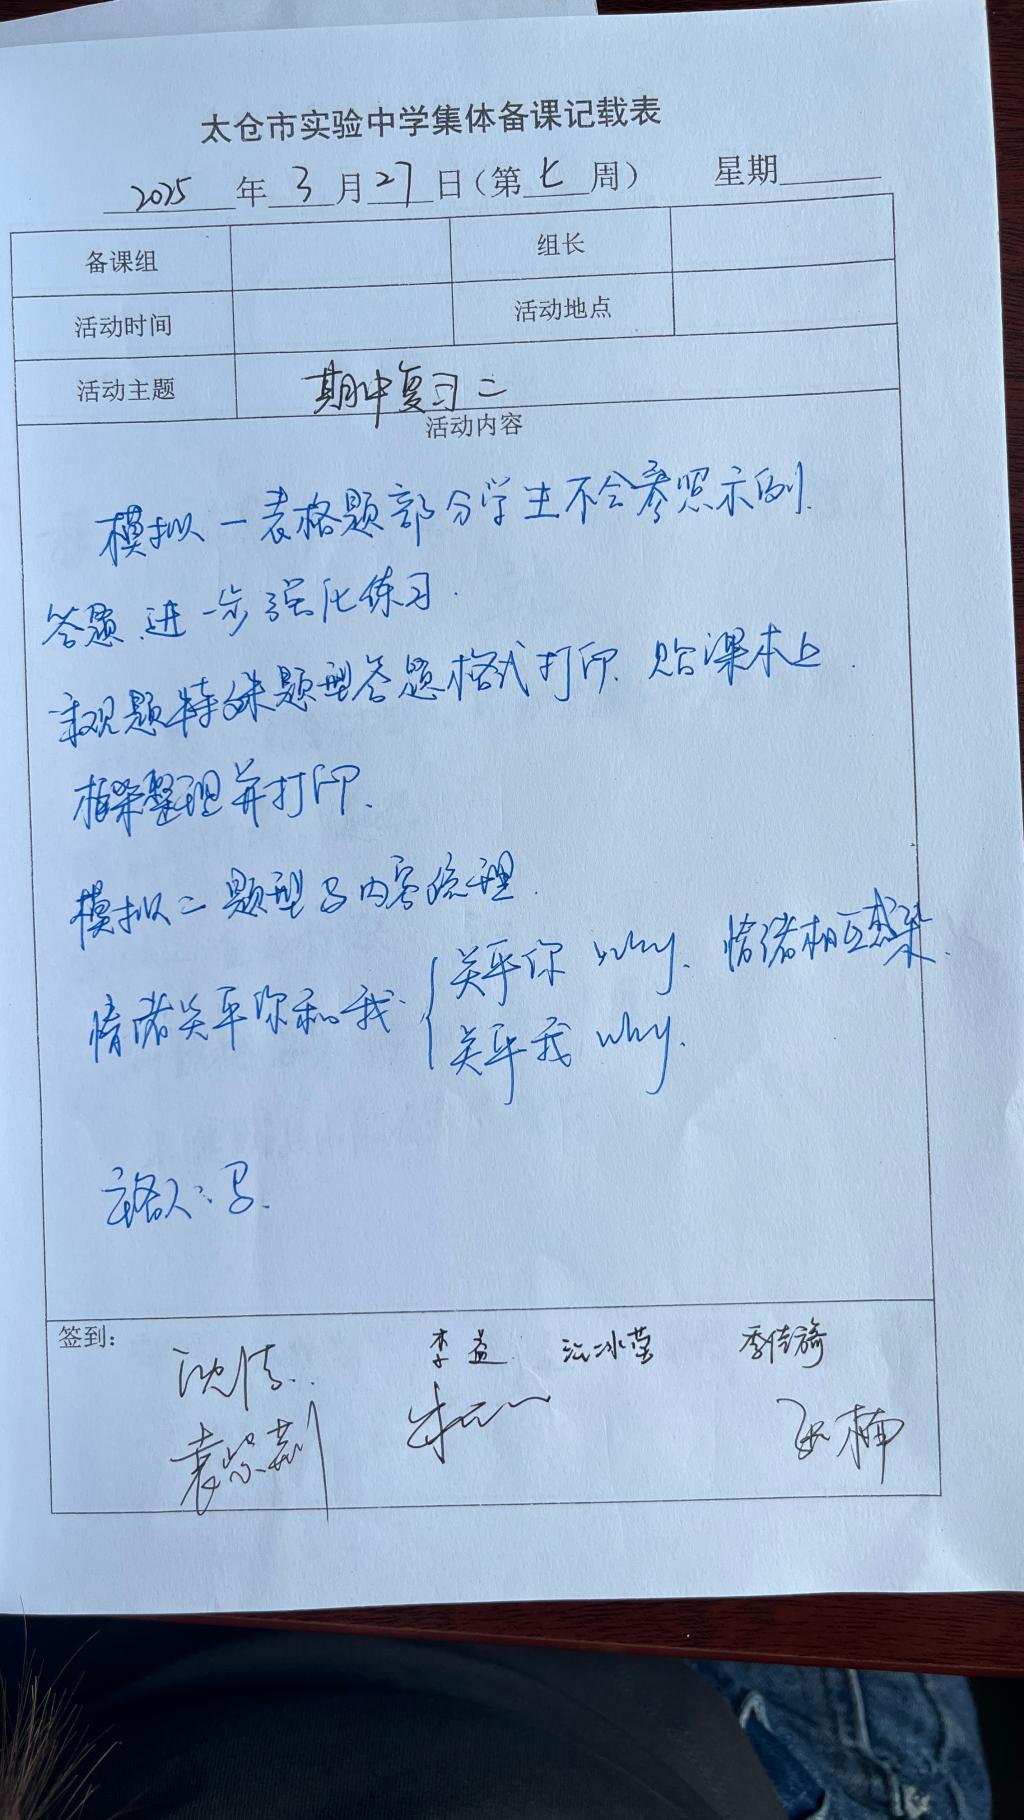 太仓市实验中学集体备课记载表
2025年3月27日（第七周） 星期
备课组 组长
活动时间 活动地点
活动主题 期中复习二
活动内容
模拟一表格题部分学生不会参照示例.
答题.进一步强化练习.
观题特殊题型答题格式打印.贴课本上.
框架整理并打印.
模拟二题型与内容梳理.
情绪关乎你和我. 关乎你 why. 情绪相互感染.
关乎我 why.
签到:
沈倩 李益 江冰莹 季倩
袁紫莉 朱 楠